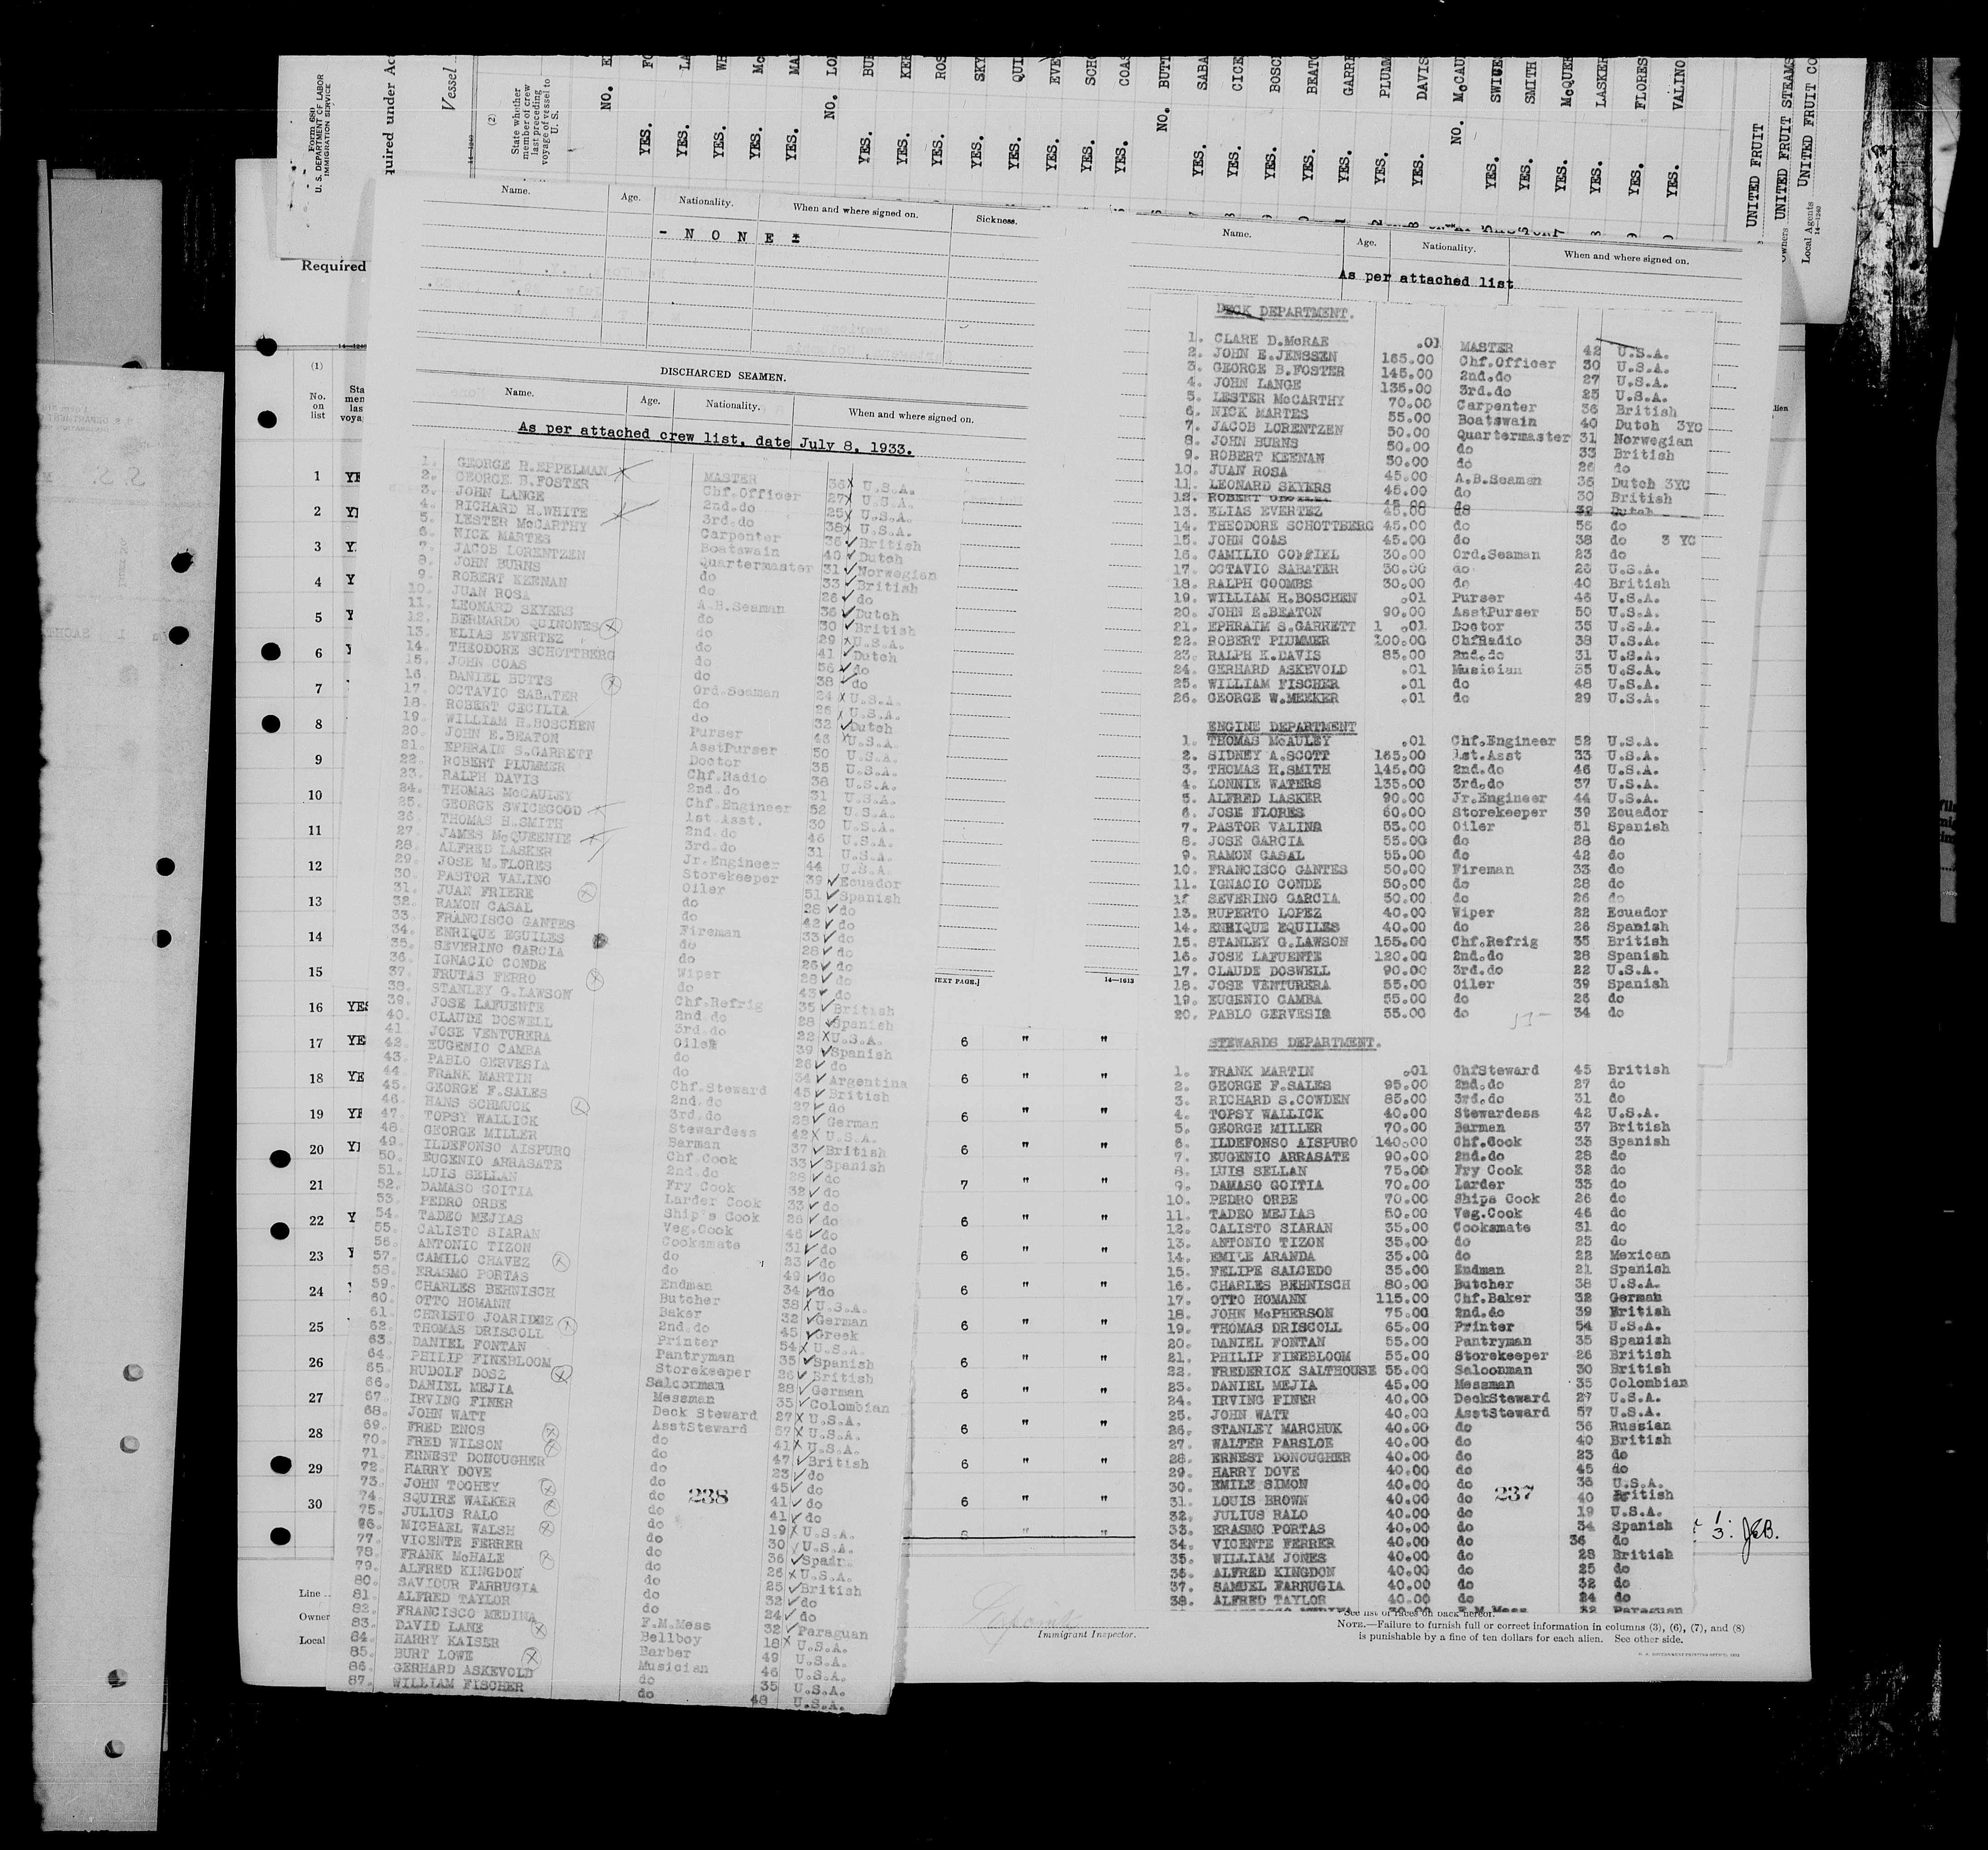 Form 680
U. S. DEPARTMENT OF LABOR
IMMIGRATION SERVICE
quired under Ac
Vessel
(2)
State whether
member of crew
last preceding
voyage of vessel to
U. S.
NO.
YES.
YES.
YES.
YES.
YES.
NO.
YES.
YES.
YES.
YES.
YES.
YES.
YES.
YES.
NO. BUTT
YES. SABA
YES. CICE
YES. BOSC
YES. BEATO
YES. GARRE
YES. PLUMM
YES. DAVIS
NO. McCAU
YES. SWICE
YES. SMITH
YES. McQUEE
YES. LASKER
YES. FLORES
YES. VALINO
UNITED FRUIT
Owners UNITED FRUIT STEAMS
Local Agents UNITED FRUIT CO
14—1240
Required
(1)
No.
on
list
Name. Age. Nationality. When and where signed on. Sickness.
- N O N E -
DISCHARGED SEAMEN.
Name. Age. Nationality. When and where signed on.
As per attached crew list, date July 8, 1933.
1. GEORGE H. EPPELMAN MASTER 36 U.S.A.
2. GEORGE B. FOSTER Chf.Officer 27 U.S.A.
3. JOHN LANGE 2nd.do 25 U.S.A.
4. RICHARD H.WHITE 3rd.do 38 U.S.A.
5. LESTER McCARTHY Carpenter 36 British
6. NICK MARTES Boatswain 40 Dutch
7. JACOB LORENTZEN Quartermaster 31 Norwegian
8. JOHN BURNS do 33 British
9. ROBERT KEENAN do 26 do
10. JUAN ROSA A.B.Seaman 36 Dutch
11. LEONARD SKYERS do 30 British
12. BERNARDO QUINONES do 29 U.S.A.
13. ELIAS EVERTEZ do 41 Dutch
14. THEODORE SCHOTTBERG do 56 do
15. JOHN COAS do 38 do
16. DANIEL BUTTS Ord.Seaman 24 U.S.A.
17. OCTAVIO SABATER do 26 U.S.A.
18. ROBERT CECILIA do 32 Dutch
19. WILLIAM H.BOSCHEN Purser 46 U.S.A.
20. JOHN E.BEATON AsstPurser 50 U.S.A.
21. EPHRAIN S.GARRETT Doctor 35 U.S.A.
22. ROBERT PLUMMER Chf.Radio 38 U.S.A.
23. RALPH DAVIS 2nd.do 31 U.S.A.
24. THOMAS McCAULEY Chf.Engineer 52 U.S.A.
25. GEORGE SWICEGOOD 1st.Asst. 30 U.S.A.
26. THOMAS H.SMITH 2nd.do 46 U.S.A.
27. JAMES McQUEENIE 3rd.do 31 U.S.A.
28. ALFRED LASKER Jr.Engineer 44 U.S.A.
29. JOSE M.FLORES Storekeeper 39 Ecuador
30. PASTOR VALINO Oiler 51 Spanish
31. JUAN FRIERE do 28 do
32. RAMON CASAL do 42 do
33. FRANCISCO GANTES Fireman 33 do
34. ENRIQUE EGUILES do 28 do
35. SEVERINO GARCIA do 26 do
36. IGNACIO CONDE Wiper 28 do
37. FRUTAS FERRO do 43 do
38. STANLEY G.LAWSON Chf.Refrig 35 British
39. JOSE LAFUENTE 2nd.do 28 Spanish
40. CLAUDE DOSWELL 3rd.do 22 U.S.A.
41. JOSE VENTURERA Oiler 39 Spanish
42. EUGENIO CAMBA do 26 do
43. PABLO GERVESIA do 34 Argentina
44. FRANK MARTIN Chf.Steward 45 British
45. GEORGE F.SALES 2nd.do 27 do
46. HANS SCHMUCK 3rd.do 28 German
47. TOPSY WALLICK Stewardess 42 U.S.A.
48. GEORGE MILLER Barman 37 British
49. ILDEFONSO AISPURO Chf.Cook 33 Spanish
50. EUGENIO ARRASATE 2nd.do 28 do
51. LUIS SELLAN Fry Cook 32 do
52. DAMASO GOITIA Larder Cook 33 do
53. PEDRO ORBE Ship's Cook 26 do
54. TADEO MEJIAS Veg.Cook 46 do
55. CALISTO SIARAN Cooksmate 31 do
56. ANTONIO TIZON do 23 do
57. CAMILO CHAVEZ do 49 do
58. ERASMO PORTAS Endman 34 do
59. CHARLES BEHNISCH Butcher 38 U.S.A.
60. OTTO HOMANN Baker 32 German
61. CHRISTO JOARIDEZ 2nd.do 45 Greek
62. THOMAS DRISCOLL Printer 54 U.S.A.
63. DANIEL FONTAN Pantryman 35 Spanish
64. PHILIP FINEBLOOM Storekeeper 26 British
65. RUDOLF DOSE Saloonman 28 German
66. DANIEL MEJIA Messman 35 Colombian
67. IRVING FINER Deck Steward 27 U.S.A.
68. JOHN WATT AsstSteward 57 U.S.A.
69. FRED ENOS do 41 U.S.A.
70. FRED WILSON do 47 British
71. ERNEST DONOUGHER do 23 do
72. HARRY DOVE do 45 do
73. JOHN TOOHEY do 41 do
74. SQUIRE WALKER do 41 do
75. JULIUS RALO do 19 U.S.A.
76. MICHAEL WALSH do 30 U.S.A.
77. VICENTE FERRER do 36 Spain.
78. FRANK McHALE do 26 U.S.A.
79. ALFRED KINGDON do 25 British
80. SAVIOUR FARRUGIA do 32 do
81. ALFRED TAYLOR do 24 do
82. FRANCISCO MEDINA P.M.Mess 32 Paraguan
83. DAVID LANE Bellboy 18 U.S.A.
84. HARRY KAISER Barber 49 U.S.A.
85. BURT LOWE Musician 46 U.S.A.
86. GERHARD ASKEVOLD do 35 U.S.A.
87. WILLIAM FISCHER do 48 U.S.A.
238
Name. Age. Nationality. When and where signed on.
As per attached list
DECK DEPARTMENT.
1. CLARE D.McRAE .01 MASTER 42 U.S.A.
2. JOHN E.JENSSEN 165.00 Chf.Officer 30 U.S.A.
3. GEORGE B.FOSTER 145.00 2nd.do 27 U.S.A.
4. JOHN LANGE 135.00 3rd.do 25 U.S.A.
5. LESTER McCARTHY 70.00 Carpenter 36 British
6. NICK MARTES 55.00 Boatswain 40 Dutch 3YC
7. JACOB LORENTZEN 50.00 Quartermaster 31 Norwegian
8. JOHN BURNS 50.00 do 33 British
9. ROBERT KEENAN 50.00 do 26 do
10. JUAN ROSA 45.00 A.B.Seaman 36 Dutch 3YC
11. LEONARD SKYERS 45.00 do 30 British
12. ROBERT 45.00 do 32 Dutch
13. ELIAS EVERTEZ 45.00
14. THEODORE SCHOTTBERG 45.00 do 56 do
15. JOHN COAS 45.00 do 38 do 3 YC
16. CAMILIO COFFIEL 30.00 Ord.Seaman 23 do
17. OCTAVIO SABATER 30.00 do 26 U.S.A.
18. RALPH COOMBS 30.00 do 40 British
19. WILLIAM H.BOSCHEN .01 Purser 46 U.S.A.
20. JOHN E.BEATON 90.00 AsstPurser 50 U.S.A.
21. EPHRAIM S.GARRETT 1 .01 Doctor 35 U.S.A.
22. ROBERT PLUMMER 100.00 ChfRadio 38 U.S.A.
23. RALPH K.DAVIS 85.00 2nd.do 31 U.S.A.
24. GERHARD ASKEVOLD .01 Musician 35 U.S.A.
25. WILLIAM FISCHER .01 do 48 U.S.A.
26. GEORGE W.MEEKER .01 do 29 U.S.A.
ENGINE DEPARTMENT
1. THOMAS McAULEY .01 Chf.Engineer 52 U.S.A.
2. SIDNEY A.SCOTT 165.00 1st.Asst 33 U.S.A.
3. THOMAS H.SMITH 145.00 2nd.do 46 U.S.A.
4. LONNIE WATERS 135.00 3rd.do 37 U.S.A.
5. ALFRED LASKER 90.00 Jr.Engineer 44 U.S.A.
6. JOSE FLORES 60.00 Storekeeper 39 Ecuador
7. PASTOR VALINO 55.00 Oiler 51 Spanish
8. JOSE GARCIA 55.00 do 28 do
9. RAMON CASAL 55.00 do 42 do
10. FRANCISCO GANTES 50.00 Fireman 33 do
11. IGNACIO CONDE 50.00 do 28 do
12 SEVERINO GARCIA 50.00 do 26 do
13. RUPERTO LOPEZ 40.00 Wiper 22 Ecuador
14. ENRIQUE EQUILES 40.00 do 26 Spanish
15. STANLEY G.LAWSON 155.00 Chf.Refrig 35 British
16. JOSE LAFUENTE 120.00 2nd.do 28 Spanish
17. CLAUDE DOSWELL 90.00 3rd.do 22 U.S.A.
18. JOSE VENTURERA 55.00 Oiler 39 Spanish
19. EUGENIO CAMBA 55.00 do 26 do
20. PABLO GERVESIA 55.00 do 34 do
STEWARDS DEPARTMENT.
1. FRANK MARTIN .01 ChfSteward 45 British
2. GEORGE F.SALES 95.00 2nd.do 27 do
3. RICHARD S.COWDEN 85.00 3rd.do 31 do
4. TOPSY WALLICK 40.00 Stewardess 42 U.S.A.
5. GEORGE MILLER 70.00 Barman 37 British
6. ILDEFONSO AISPURO 140.00 Chf.Cook 33 Spanish
7. EUGENIO ARRASATE 90.00 2nd.do 28 do
8. LUIS SELLAN 75.00 Fry Cook 32 do
9. DAMASO GOITIA 70.00 Larder 33 do
10. PEDRO ORBE 70.00 Ships Cook 26 do
11. TADEO MEJIAS 50.00 Veg.Cook 46 do
12. CALISTO SIARAN 35.00 Cooksmate 31 do
13. ANTONIO TIZON 35.00 do 23 do
14. EMILE ARANDA 35.00 do 22 Mexican
15. FELIPE SALCEDO 35.00 Endman 21 Spanish
16. CHARLES BEHNISCH 80.00 Butcher 38 U.S.A.
17. OTTO HOMANN 115.00 Chf.Baker 32 German
18. JOHN McPHERSON 75.00 2nd.do 39 British
19. THOMAS DRISCOLL 65.00 Printer 54 U.S.A.
20. DANIEL FONTAN 55.00 Pantryman 35 Spanish
21. PHILIP FINEBLOOM 55.00 Storekeeper 26 British
22. FREDERICK SALTHOUSE 55.00 Saloonman 30 British
23. DANIEL MEJIA 45.00 Messman 35 Colombian
24. IRVING FINER 40.00 DeckSteward 27 U.S.A.
25. JOHN WATT 40.00 AsstSteward 57 U.S.A.
26. STANLEY MARCHUK 40.00 do 36 Russian
27. WALTER PARSLOE 40.00 do 40 British
28. ERNEST DONOUGHER 40.00 do 23 do
29. HARRY DOVE 40.00 do 45 do
30. EMILE SIMON 40.00 do 36 U.S.A.
31. LOUIS BROWN 40.00 do 40 British
32. JULIUS RALO 40.00 do 19 U.S.A.
33. ERASMO PORTAS 40.00 do 34 Spanish
34. VICENTE FERRER 40.00 do 36 do
35. WILLIAM JONES 40.00 do 28 British
36. ALFRED KINGDON 40.00 do 25 do
37. SAMUEL FARRUGIA 40.00 do 32 do
38. ALFRED TAYLOR 40.00 do 24 do
237
1
2
3
4
5
6
7
8
9
10
11
12
13
14
15
16 YES
17 YE 6 " "
18 YE 6 " "
19 YE 6 " "
20 6 " "
21 7 " "
22 6 " "
23 6 " "
24 6 " "
25 6 " "
26 6 " "
27 6 " "
28 6 " "
29 6 " "
30 6 " "
NEXT PAGE.]
14—1613
Line
Owner
Local
Immigrant Inspector.
See list of races on back hereof.
NOTE.—Failure to furnish full or correct information in columns (3), (6), (7), and (8)
is punishable by a fine of ten dollars for each alien. See other side.
JEB.